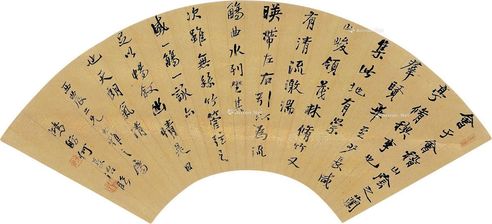 會于會稽山陰之蘭
亭脩稧事也
羣賢畢至少長咸
集此地有崇
山峻領茂林脩竹又
有清流激湍
暎帶左右引以為流
觴曲水列坐其
次雖無絲竹管弦之
盛一觴一詠亦
足以暢敘幽情是日
也天朗氣清惠風
二兄
鴻舫何長治臨